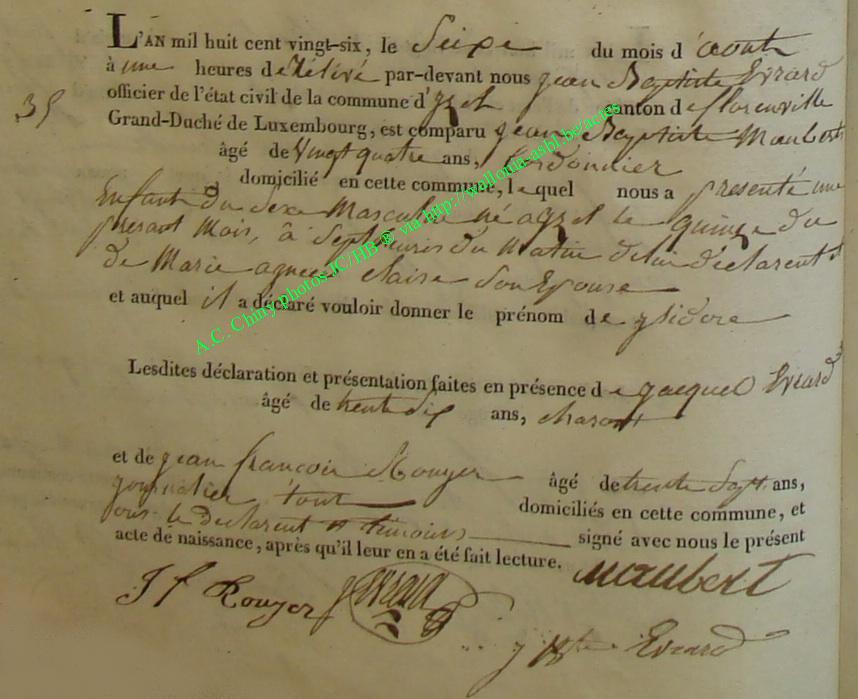 L'AN mil huit cent vingt-six, le Seize du mois d'aout
à une heures de Rélévé par-devant nous jean Baptiste Evrard
officier de l'état civil de la commune d'yzel canton de florenville
35
Grand-Duché de Luxembourg, est comparu jean Baptiste Maubert
âgé de Vingt quatre ans, Cordonnier
domicilié en cette commune, lequel nous a presenté une
Enfant du Sexe Masculin né a yzel le quinze du
present Mois, à Sept heures du Matin de lui déclarent et
de Marie agnes claise Son Epouse
et auquel il a déclaré vouloir donner le prénom de ysidore
Lesdites déclaration et présentation faites en présence de jacques Evrard
âgé de trente Six ans,
et de jean françois Rouyer âgé de trente Sept ans,
journalier tout domiciliés en cette commune, et
ous le declarent et temoins signé avec nous le présent
acte de naissance, après qu'il leur en a été fait lecture.
Maubert
J f Rouyer J Evrard
j Bte Evrard
A.C. Chiny photos IC/HB ® via http://wallonia-asbl.be/actes